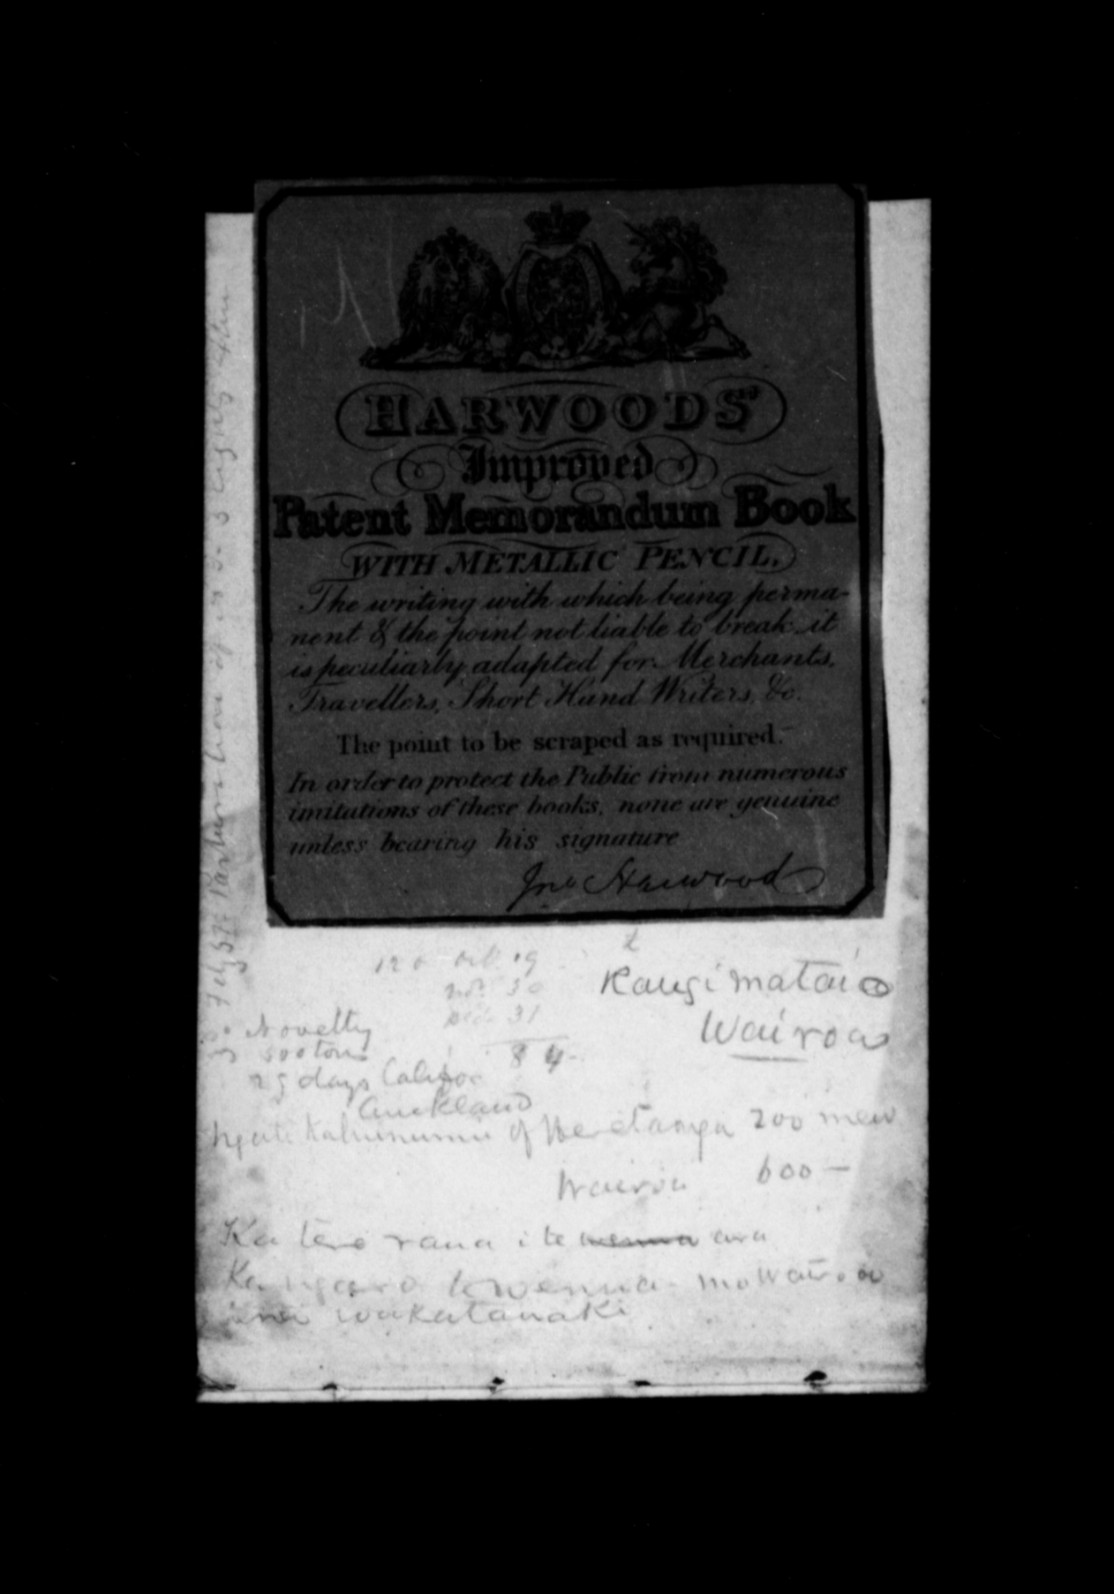 HARWOODS'
Improved
Patent Memorandum Book
WITH METALLIC PENCIL.
The writing with which being perma-
nent & the point not liable to break it
is peculiarly adapted for Merchants,
Travellers, Short Hand Writers, &c.
The point to be scraped as required.
In order to protect the Public from numerous
imitations of these books, none are genuine
unless bearing his signature
Jno Harwood
Oct. 19
Nov 30
Dec 31
84
Rangi mataio
Wairoa
Novelty
500 tons
29 days
Auckland
Ngati Kahununu of Heretanga 200 men
Wairoa 600 —
Ka tere rana i te wenua ara
Ka ngaro wenua - mo Wairoa
wakatanaki